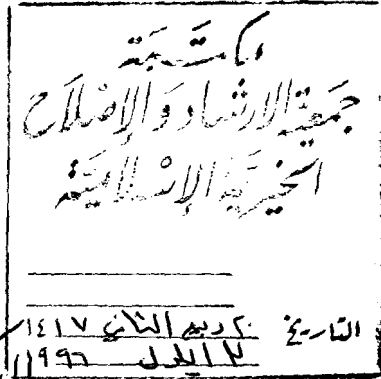 مكتبة
جمعية الارشاد والإصلاح
الخيرية الإسلامية
التاريخ ٢٠ ربيع الثاني ١٤١٧
ايلول ١٩٩٦